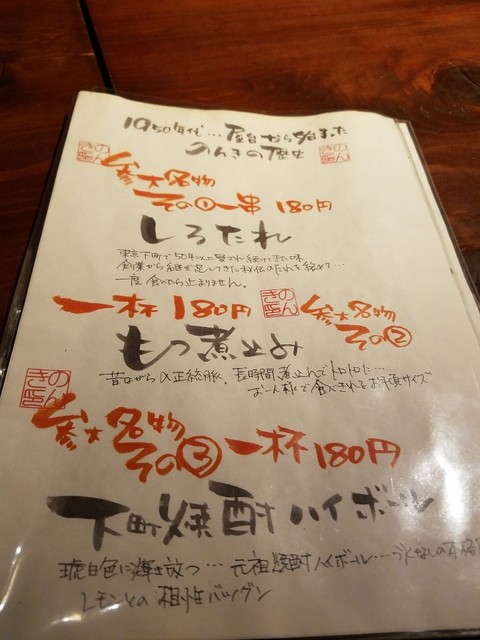 1950年代…屋台から始まった
のんきの歴史
のんき
のんき
参大名物
その①一串 180円
しろたれ
東京下町で50年以上愛され続けてきた味
創業から継ぎ足してきた秘伝のたれを絡めて…
一度食べたら止まりません。
一杯 180円
のんき
参大名物
その②
もつ煮込み
昔ながらの正統豚、長時間煮込んでトロトロに…
お一人様で食べきれるお手頃サイズ
のんき
参大名物
その③一杯180円
下町焼酎ハイボール
琥珀色に輝き放つ…元祖焼酎ハイボール…
レモンとの相性バツグン